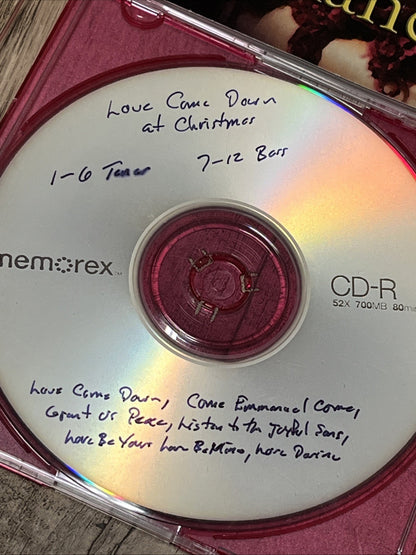 Love Came Down
at Christmas
1-6 Tenor 7-12 Bass
memorex
CD-R
52X 700MB 80min
Love Came Down, Come Emmanuel Come,
Grant Us Peace, Listen to the Joyful Song,
Love Be Your Love Be Mine, Love Devine